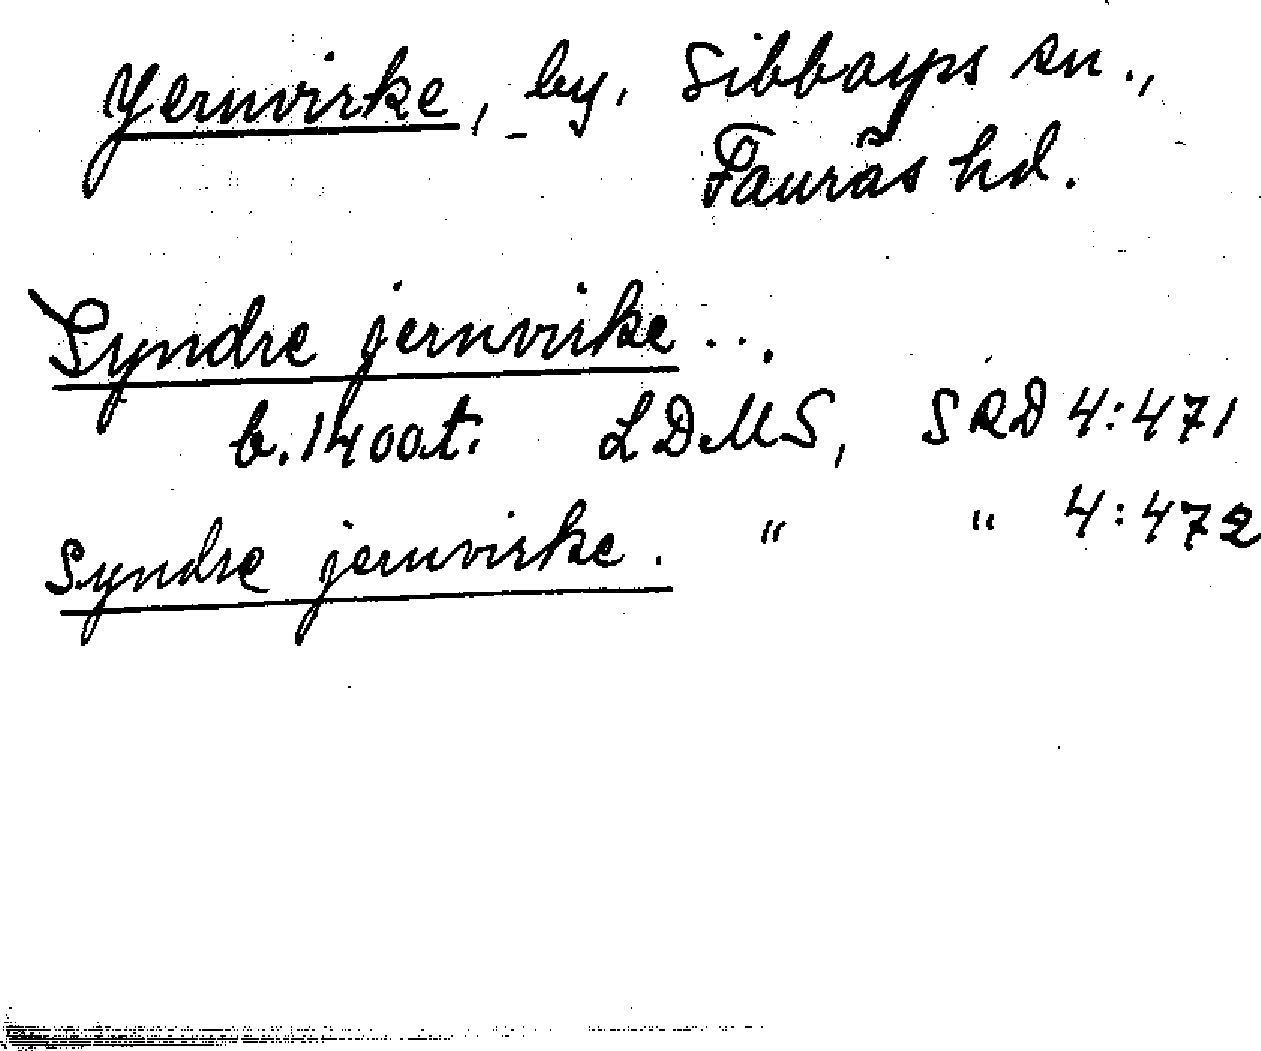 Jernvirke, by, Sibbarps sn.,
Faurås hd.
Syndre jernvirke...
b. 1400 t. LDMS, SRD 4:471
Syndre jernvirke. " " 4:472